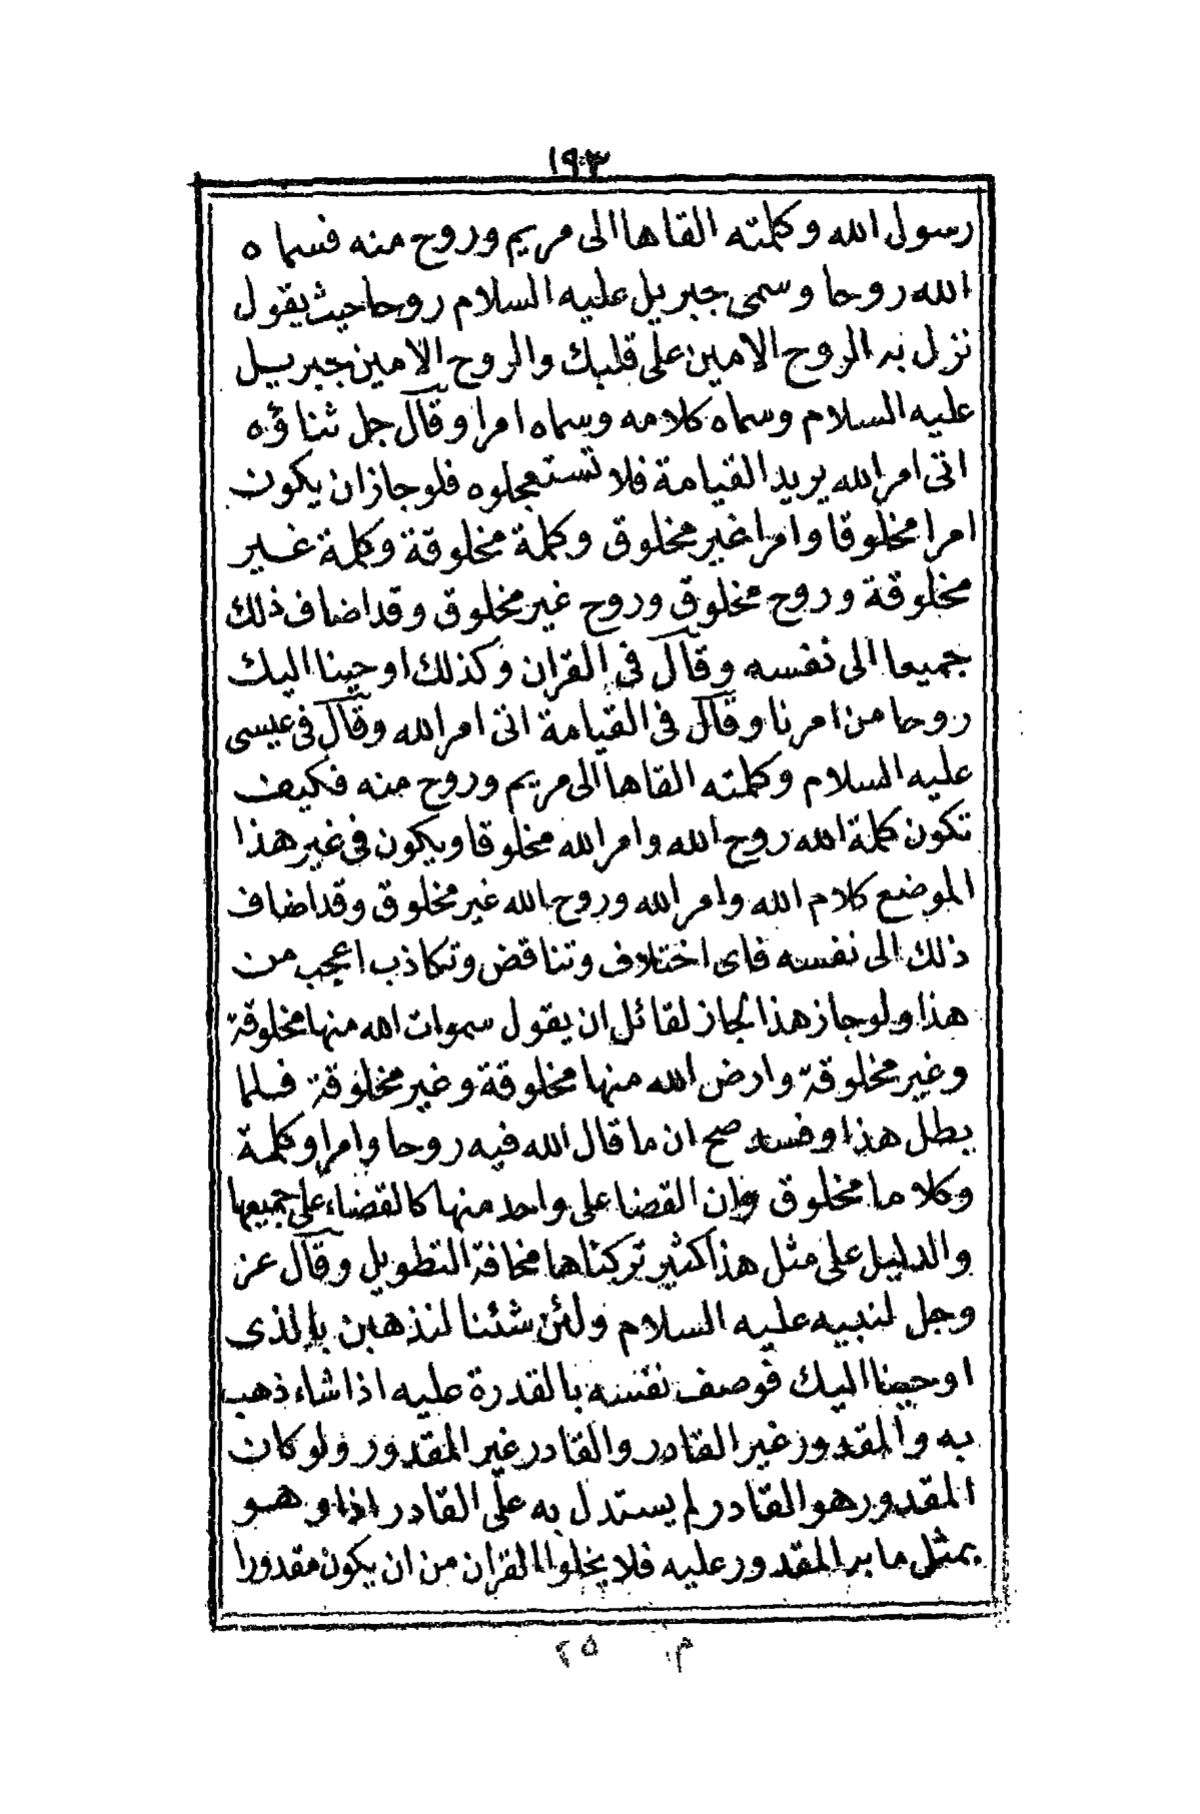 ١٩٣
رسول الله وكلمته القاها الى مريم وروح منه فسماه
الله روحا وسمى جبريل عليه السلام روحا حيث يقول
نزل به الروح الامين على قلبك والروح الامين جبريل
عليه السلام وسماه كلامه وسماه امرا وقال جل ثناؤه
اتى امر الله يريد القيامة فلا تستعجلوه فلو جاز ان يكون
امرا مخلوقا وامرا غير مخلوق وكلمة مخلوقة وكلمة غير
مخلوقة وروح مخلوق وروح غير مخلوق وقد اضاف ذلك
جميعا الى نفسه وقال فى القران وكذلك اوحينا اليك
روحا من امرنا وقال فى القيامة اتى امر الله وقال فى عيسى
عليه السلام وكلمته القاها الى مريم وروح منه فكيف
تكون كلمة الله روح الله وامر الله مخلوقا ويكون فى غير هذا
الموضع كلام الله وامر الله وروح الله غير مخلوق وقد اضاف
ذلك الى نفسه فاى اختلاف وتناقض وتكاذب اعجب من
هذا ولو جاز هذا لجاز لقائل ان يقول سموات الله منها مخلوقة
وغير مخلوقة وارض الله منها مخلوقة وغير مخلوقة فلما
بطل هذا وفسد صح ان ما قال الله فيه روحا وامرا وكلمة
وكلاما مخلوق وان القضا على واحد منها كالقضاء على جميعها
والدليل على مثل هذا كثير تركناها مخافة التطويل وقال عز
وجل لنبيه عليه السلام ولئن شئنا لنذهبن بالذى
اوحينا اليك فوصف نفسه بالقدرة عليه اذا شاء ذهب
به والمقدور غير القادر والقادر غير المقدور ولو كان
المقدور هو القادر لم يستدل به على القادر اذا وهو
بمثل ما بر المقدور عليه فلا يخلوا القران من ان يكون مقدورا
م ٢٥